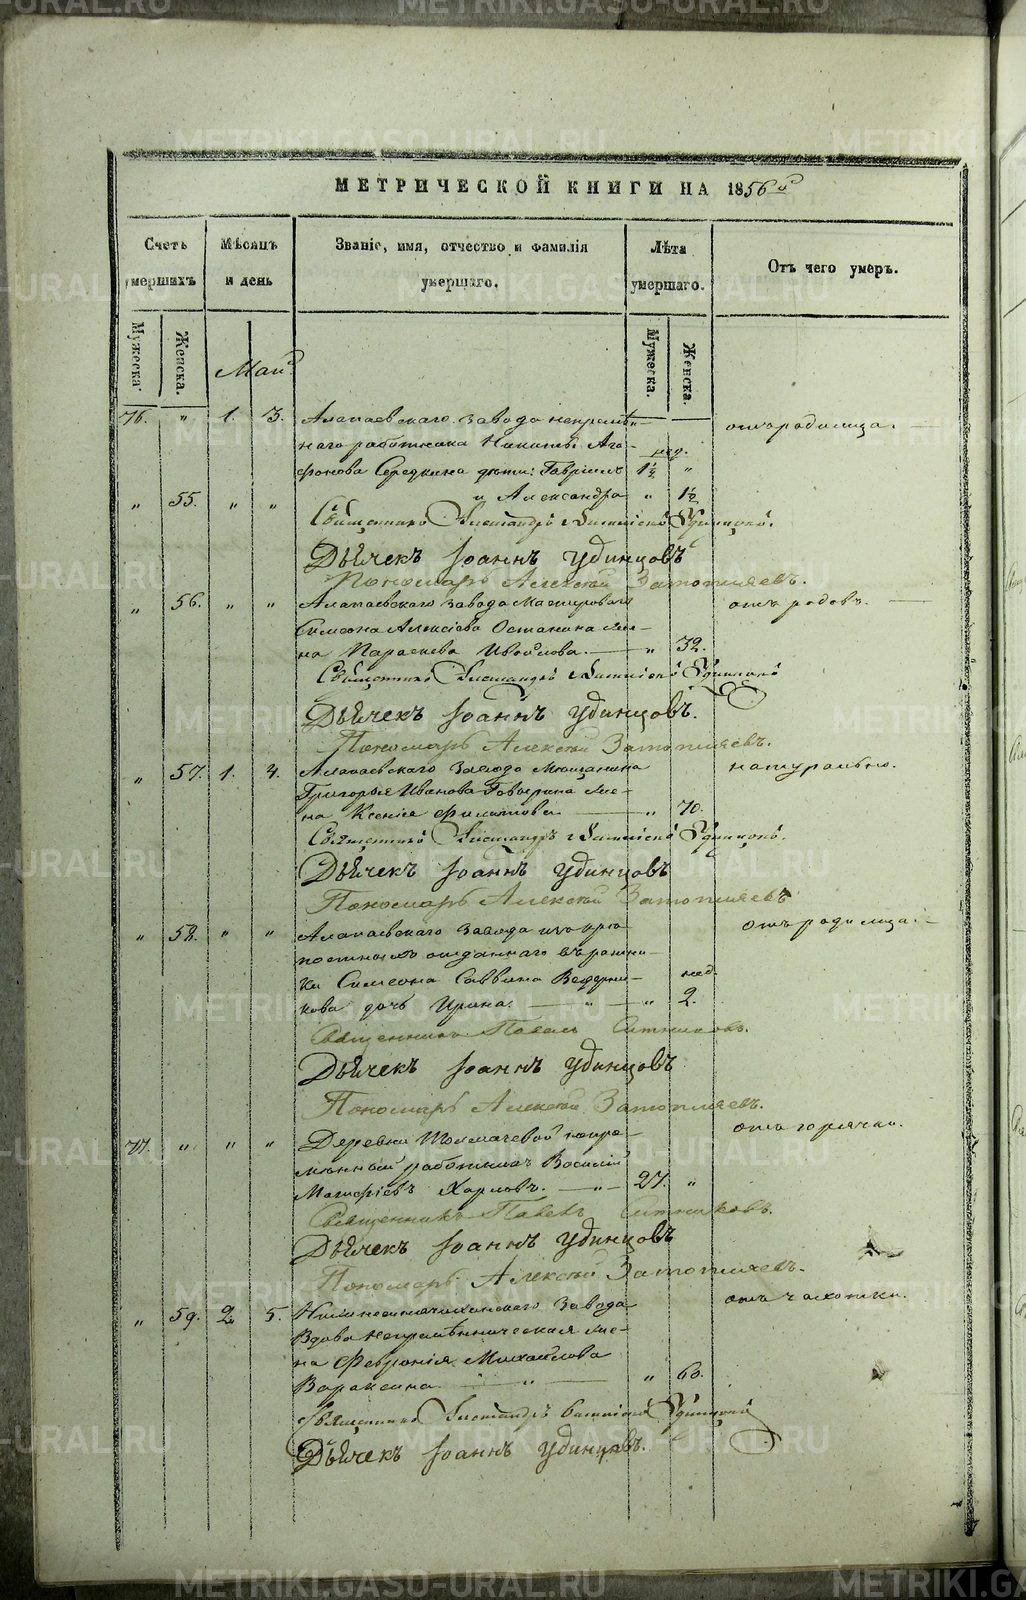 МЕТРИЧЕСКОЙ КНИГИ НА 1856й
Счетъ умершихъ
Мѣсяцъ и день
Званіе, имя, отчество и фамилія умершаго.
Лѣта умершаго.
Отъ чего умеръ.
Мужеска.
Женска.
Май
Мужеска.
Женска.
76. " 1. 3. Алапаевскаго завода непремѣн- отъ родимца.
наго работника Никиты Ага- нед.
фонова Середкина дѣти: Гавріилъ 1½ "
" 55. " " и Александра " 1½
Священникъ Александръ Удинцовъ.
Дьячекъ Іоаннъ Удинцовъ
Пономарь Алексѣй Затопляевъ.
" 56. " " Алапаевскаго завода Мастероваго отъ родовъ.
Симеона Алексіева Останина же-
на Параскева Ивойлова. " 32.
Священникъ Александръ Удинцовъ
Дьячекъ Іоаннъ Удинцовъ.
Пономарь Алексѣй Затопляевъ.
" 57. 1. 4. Алапаевскаго завода Мѣщанина натурально.
Григорья Иванова Говырина же-
на Ксенія Филатова " 70.
Священникъ Александръ Удинцовъ.
Дьячекъ Іоаннъ Удинцовъ
Пономарь Алексѣй Затопляевъ
" 58. " " Алапаевскаго завода отъ родимца.
отданнаго въ рекрu-
ты Симеона Саввина нед.
кова дочь Ирина. " " 2.
Священникъ Павелъ Ситниковъ.
Дьячекъ Іоаннъ Удинцовъ
Пономарь Алексѣй Затопляевъ.
77. " " " Деревни Толмачевой непре- отъ горячки.
мѣнный работникъ Василій
Матфіевъ Харловъ. " 27. "
Священникъ Павелъ Ситниковъ.
Дьячекъ Іоаннъ Удинцовъ
Пономарь Алексѣй Затопляевъ.
" 59. 2. 5. Нижнесинячихинскаго завода отъ чахотки.
Вдова непремѣнническая же-
на Февронія Михайлова
Вараксина " " 60.
Священникъ Александръ Удинцовъ
Дьячекъ Іоаннъ Удинцовъ.
METRIKI.GASO-URAL.RU